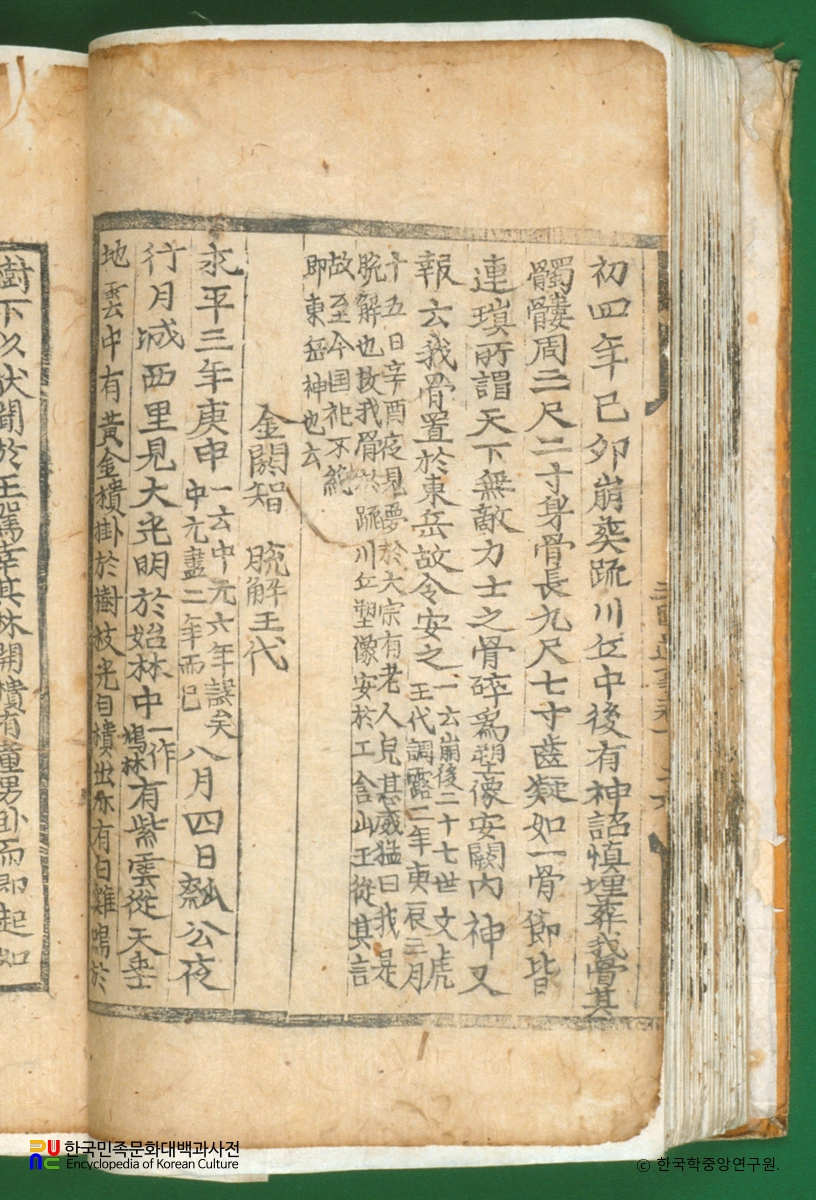 初四年己卯崩葬疏川丘中後有神詔慎埋葬我骨其
髑髏周三尺二寸身骨長九尺七寸齒凝如一骨節皆
連瑣所謂天下無敵力士之骨碎爲塑像安闕內神又
報云我骨置於東岳故令安之
一云崩後二十七世文虎
王代調露二年庚辰三月
十五日辛酉夜見夢於大宗有老人皃甚威猛曰我是
脫解也拔我骨於疏川丘塑像安於工含山王從其言
故至今国祀不絶
即東岳神也云
金閼智 脫解王代
永平三年庚申
一云中元六年誤矣
中元盡二年而已
八月四日瓠公夜
行月城西里見大光明於始林中
一作
鳩林
有紫雲從天垂
地雲中有黃金樻掛於樹枝光自樻出亦有白雞鳴於
樹下以伏聞於王駕幸其林開樻有童男卧而即起如
한국민족문화대백과사전
Encyclopedia of Korean Culture
© 한국학중앙연구원.